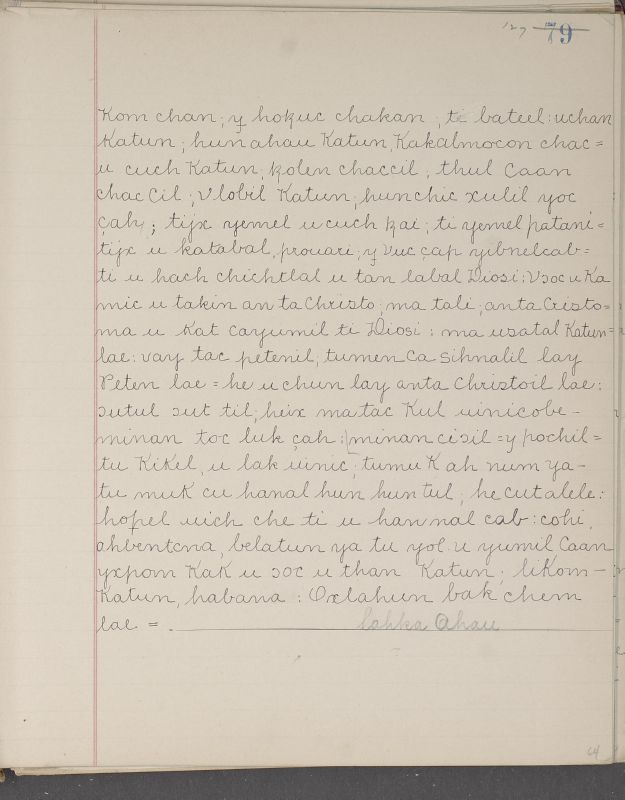 127 79
Kom chan; y hokuc chakan; ti bateel: uchan
Katun; hun ahau Katun, Kakalmocon chac=
u cuch Katun, kolen chaccil; thul Caan
chac Cil; V lobil Katun; hunchic xulil yoc
çak; tijx yemel u cuch kai; ti yemel patani=
tijx u katabal, prouari; y vuc çap yibnelcab=
ti u hach chichtlal u tan labal Diosi; Vɔoc u Ka
mic u takin an ta Christo; ma tali; anta Cristo=
ma u Kat cayumil ti Diosi: ma usatal Katun=
lae: vay tac petenil; tumen Ca sihnalil lay
Peten lae = he u chun lay anta Christoil lae:
ɔutul ɔut til; heix matac Kul uinicobe-
minan toc luk çah: minan ciɔil = y pochil=
tu KiKel, u lak uinic; tumuK ah num ya-
tu muK cu hanal hun hun tul; he cutalele:
hopel uich che ti u hannal cab: cohi,
ahbentcna, belatun ya tu yol u yumil Caan
yxpom KaK u ɔoc u than Katun; likom-
Katun, habana: Oxlahun bak chem
lae = . lahka Ahau
64